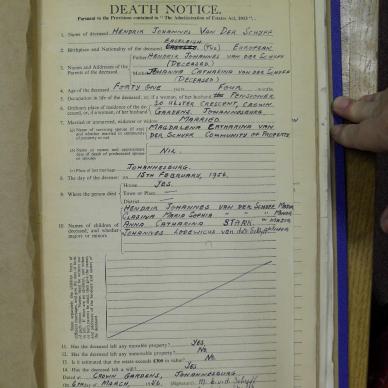 DEATH NOTICE.
Pursuant to the Provisions contained in "The Administration of Estates Act, 1913".
1. Name of deceased HENDRIK JOHANNES VAN DER SCHYFF
2. Birthplace and Nationality of the deceased EUROPEAN
Father HENDRIK JOHANNES VAN DER SCHYFF
3. Names and Addresses of the Parents of the deceased. (DECEASED)
Mother JOHANNA CATHARINA VAN DER SCHYFF
(DECEASED)
4. Age of the deceased FORTY ONE years FOUR months
5. Occupation in life of the deceased; or, if a woman, of her husband PENSIONER
6. Ordinary place of residence of the deceased, or, if a woman, of her husband 30 ULSTER CRESCENT, CROWN GARDENS, JOHANNESBURG
7. Married or unmarried, widower or widow MARRIED
(a) Name of surviving spouse if any and whether married in community of property or not MAGDALENA CATHARINA VAN DER SCHYFF COMMUNITY OF PROPERTY
NIL
(c) Place of last marriage JOHANNESBURG.
8. The day of the decease 15TH FEBRUARY, 1956.
9. Where the person died House YES.
Town or Place
District
10. Names of children of deceased, and whether majors or minors
HENDRIK JOHANNES VAN DER SCHYFF MAJOR
CLASINA MARIA SOPHIA " " " MAJOR
ANNA CATHARINA STARK MAJOR
JOHANNES LODEWICUS van der Schyff
11. Has the deceased left any movable property? YES.
12. Has the deceased left any immovable property? NO.
13. Is it estimated that the estate exceeds £300 in value? NO.
14. Has the deceased left a will? YES.
Dated at CROWN GARDENS, JOHANNESBURG
the 6TH of MARCH, 1956. (Signature) M. C. v.d. Schyff